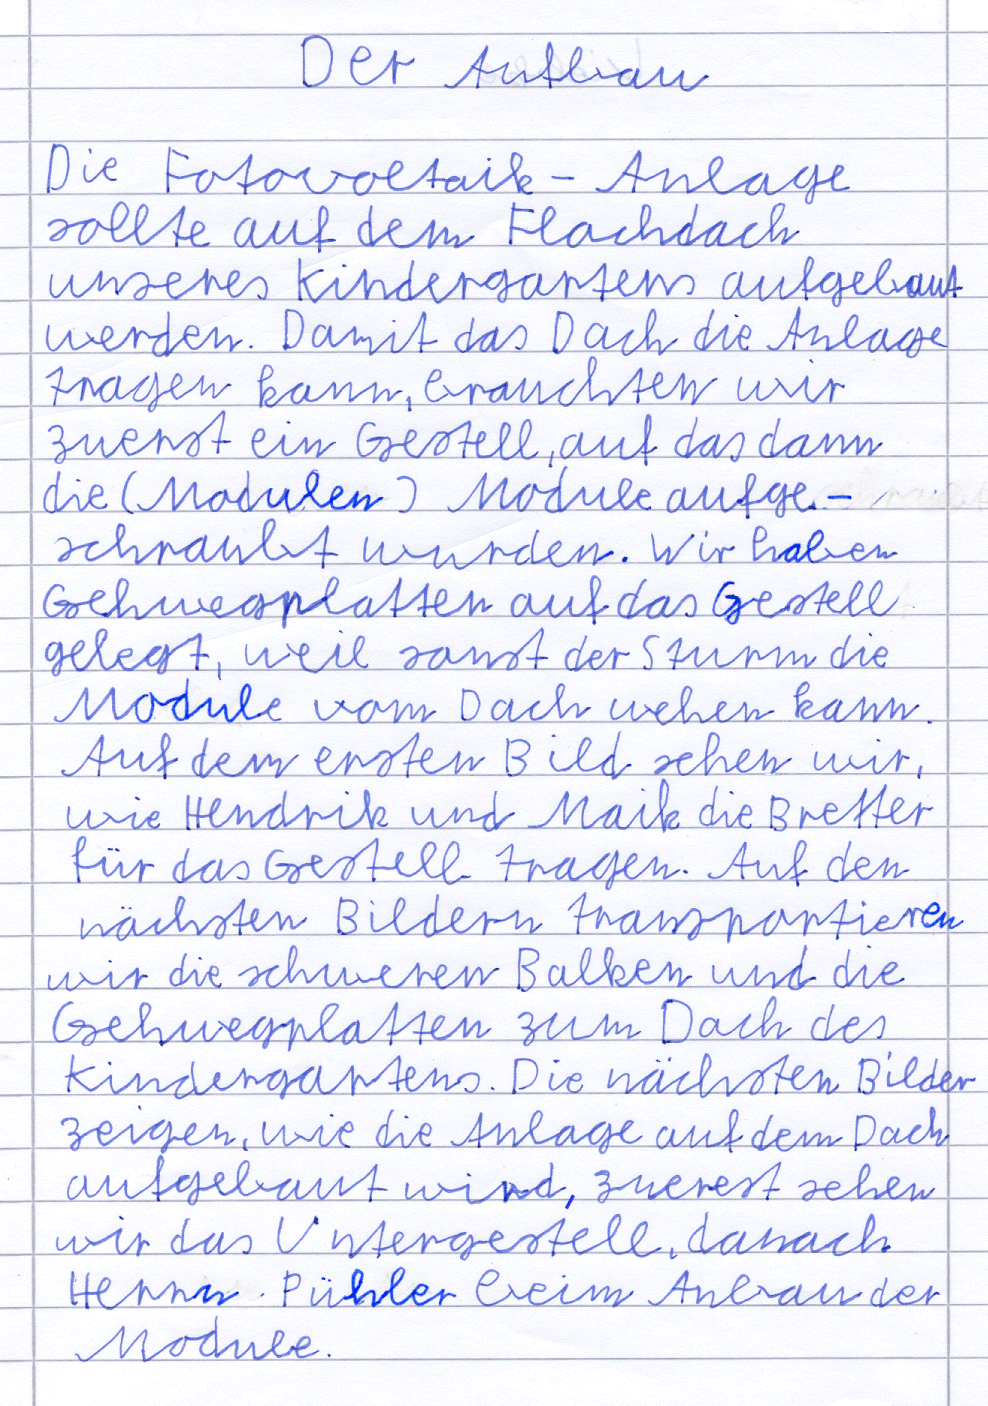 Der Aufbau
Die Fotovoltaik - Anlage
sollte auf dem Flachdach
unseres Kindergartens aufgebaut
werden. Damit das Dach die Anlage
tragen kann, brauchten wir
zuerst ein Gestell, auf das dann
die (Modulen) Module aufge-
schraubt wurden. Wir haben
Gehwegplatten auf das Gestell
gelegt, weil sonst der Sturm die
Module vom Dach wehen kann.
Auf dem ersten Bild sehen wir,
wie Hendrik und Maik die Bretter
für das Gestell tragen. Auf den
nächsten Bildern transportieren
wir die schweren Balken und die
Gehwegplatten zum Dach des
Kindergartens. Die nächsten Bilder
zeigen, wie die Anlage auf dem Dach
aufgebaut wird, zuerest sehen
wir das Untergestell, danach
Herrn Pühler beim Anbau der
Module.